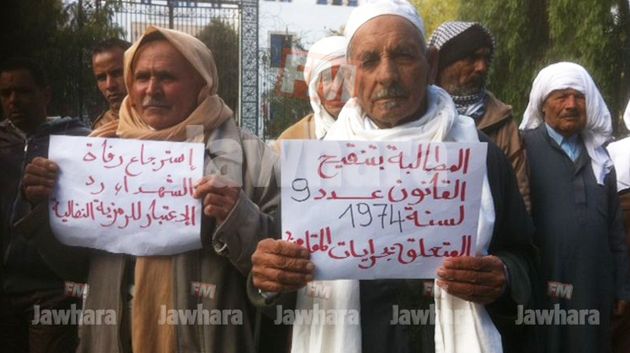 إسترجاع رفاة
الشهداء رد
الاعتبار للرمزية النضالية
المطالبة بتنقيح
القانون عدد 9
لسنة 1974
المتعلق بجرايات المقاومين
FM
Jawhara
FM
Jawhara
FM
Jawhara
FM
Jawhara
FM
Jawhara
FM
Jawhara